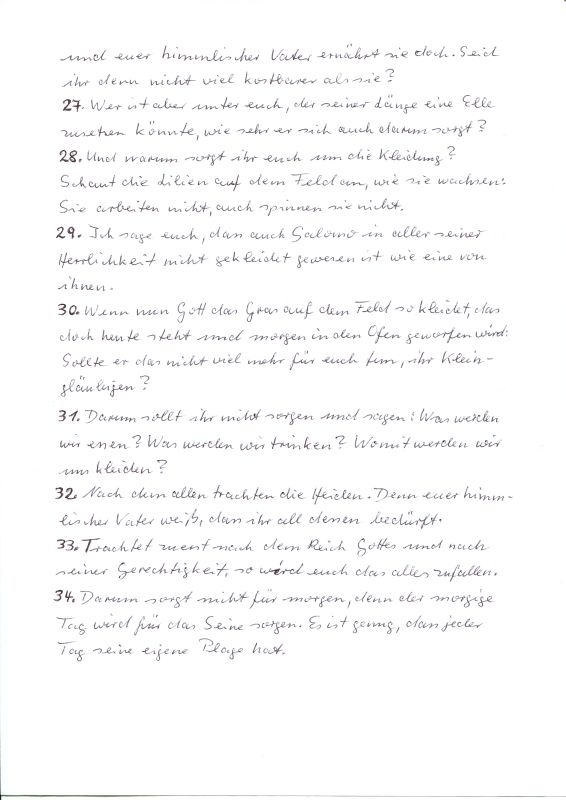 und euer himmlischer Vater ernährt sie doch. Seid
ihr denn nicht viel kostbarer als sie?
27. Wer ist aber unter euch, der seiner Länge eine Elle
zusetzen könnte, wie sehr er sich auch darum sorgt?
28. Und warum sorgt ihr euch um die Kleidung?
Schaut die Lilien auf dem Feld an, wie sie wachsen:
Sie arbeiten nicht, auch spinnen sie nicht.
29. Ich sage euch, dass auch Salomo in aller seiner
Herrlichkeit nicht gekleidet gewesen ist wie eine von
ihnen.
30. Wenn nun Gott das Gras auf dem Feld so kleidet, das
doch heute steht und morgen in den Ofen geworfen wird:
Sollte er das nicht viel mehr für euch tun, ihr Klein-
gläubigen?
31. Darum sollt ihr nicht sorgen und sagen: Was werden
wir essen? Was werden wir trinken? Womit werden wir
uns kleiden?
32. Nach dem allen trachten die Heiden. Denn euer himm-
lischer Vater weiß, dass ihr all dessen bedürft.
33. Trachtet zuerst nach dem Reich Gottes und nach
seiner Gerechtigkeit, so wird euch das alles zufallen.
34. Darum sorgt nicht für morgen, denn der morgige
Tag wird für das Seine sorgen. Es ist genug, dass jeder
Tag seine eigene Plage hat.